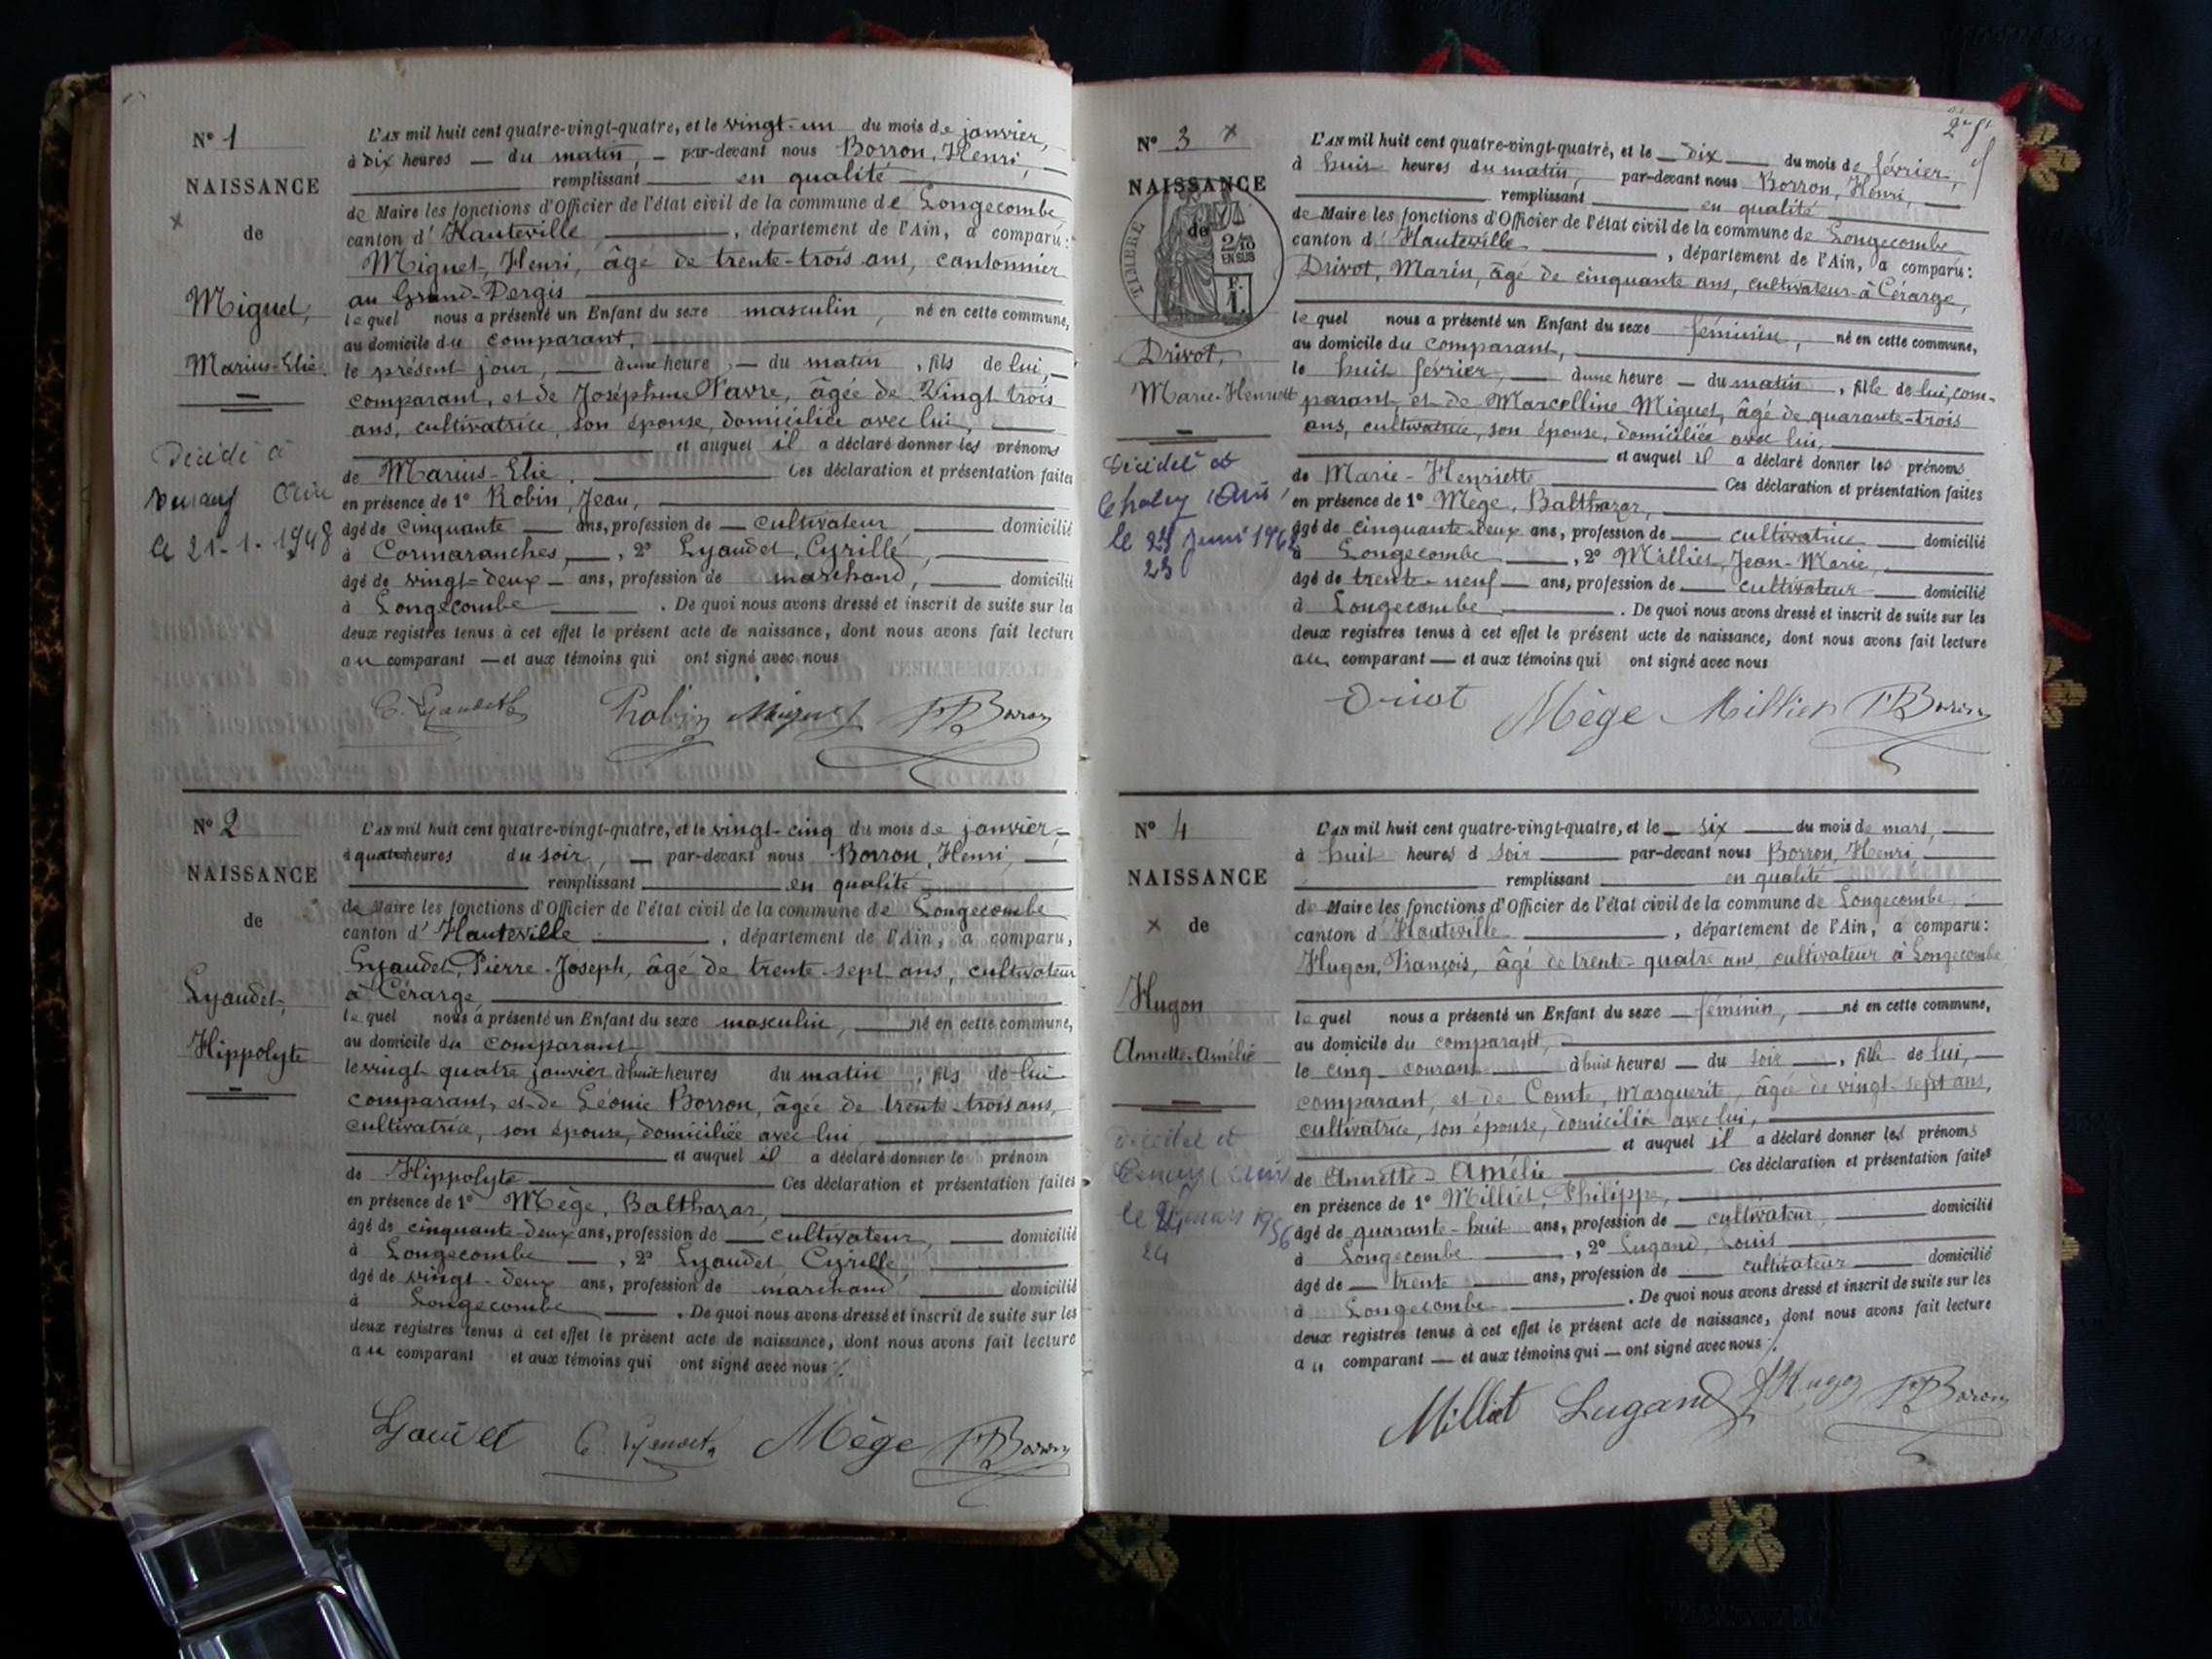 Nº 1
NAISSANCE
de
Miguet,
Marius-Elie.
Décédé à
le 21-1-1948
L'AN mil huit cent quatre-vingt-quatre, et le vingt-un du mois de janvier,
à dix heures du matin, par-devant nous Borron, Henri,
remplissant en qualité
de Maire les fonctions d'Officier de l'état civil de la commune de Longecombe
canton d'Hauteville, département de l'Ain, a comparu:
Miguet, Henri, âgé de trente-trois ans, cantonnier
au Grand-Dergis
lequel nous a présenté un Enfant du sexe masculin, né en cette commune,
au domicile du comparant,
le présent jour, à une heure, du matin, fils de lui,
comparant, et de Joséphine Favre, âgée de Vingt trois
ans, cultivatrice, son épouse, domiciliée avec lui,
et auquel il a déclaré donner les prénoms
de Marius-Elie. Ces déclaration et présentation faites
en présence de 1º Robin, Jean,
âgé de cinquante ans, profession de cultivateur domicilié
à Cormaranches, 2º Lyaudet, Cyrille,
âgé de vingt-deux ans, profession de marchand, domicilié
à Longecombe. De quoi nous avons dressé et inscrit de suite sur les
deux registres tenus à cet effet le présent acte de naissance, dont nous avons fait lecture
au comparant et aux témoins qui ont signé avec nous
C. Lyaudet Robin Miguet H Borron
Nº 2
NAISSANCE
de
Lyaudet,
Hippolyte
L'AN mil huit cent quatre-vingt-quatre, et le vingt-cinq du mois de janvier,
à quatre heures du soir, par-devant nous Borron, Henri,
remplissant en qualité
de Maire les fonctions d'Officier de l'état civil de la commune de Longecombe
canton d'Hauteville, département de l'Ain, a comparu,
Lyaudet, Pierre-Joseph, âgé de trente-sept ans, cultivateur
à Cérarge,
lequel nous a présenté un Enfant du sexe masculin, né en cette commune,
au domicile du comparant
le vingt-quatre janvier à huit heures du matin, fils de lui
comparant, et de Léonie Borron, âgée de trente-trois ans,
cultivatrice, son épouse, domiciliée avec lui,
et auquel il a déclaré donner le prénom
de Hippolyte Ces déclaration et présentation faites
en présence de 1º Mège, Balthazar,
âgé de cinquante-deux ans, profession de cultivateur, domicilié
à Longecombe, 2º Lyaudet, Cyrille,
âgé de vingt-deux ans, profession de marchand domicilié
à Longecombe. De quoi nous avons dressé et inscrit de suite sur les
deux registres tenus à cet effet le présent acte de naissance, dont nous avons fait lecture
au comparant et aux témoins qui ont signé avec nous
Lyaudet C. Lyaudet Mège H Borron
Nº 3
NAISSANCE
de
TIMBRE
2/10
EN SUS
F.
1.
Drivot,
Marie-Henriett
Décédée à
Chaley (Ain)
le
23
L'AN mil huit cent quatre-vingt-quatre, et le dix du mois de février,
à huit heures du matin, par-devant nous Borron, Henri,
remplissant en qualité
de Maire les fonctions d'Officier de l'état civil de la commune de Longecombe
canton d'Hauteville, département de l'Ain, a comparu:
Drivot, Marin, âgé de cinquante ans, cultivateur à Cérarge,
lequel nous a présenté un Enfant du sexe féminin, né en cette commune,
au domicile du comparant,
le huit février, à une heure du matin, fille de lui, com-
parant, et de Marcelline Miguet, âgé de quarante-trois
ans, cultivatrice, son épouse, domiciliée avec lui,
et auquel il a déclaré donner les prénoms
de Marie-Henriette Ces déclaration et présentation faites
en présence de 1º Mège, Balthazar,
âgé de cinquante-deux ans, profession de cultivatrice domicilié
à Longecombe, 2º Milliet, Jean-Marie,
âgé de trente-neuf ans, profession de cultivateur domicilié
à Longecombe. De quoi nous avons dressé et inscrit de suite sur les
deux registres tenus à cet effet le présent acte de naissance, dont nous avons fait lecture
au comparant et aux témoins qui ont signé avec nous
Drivot Mège Milliet H Borron
Nº 4
NAISSANCE
de
Hugon
Annette-Amélie
24
L'AN mil huit cent quatre-vingt-quatre, et le six du mois de mars,
à huit heures d soir par-devant nous Borron, Henri,
remplissant en qualité
de Maire les fonctions d'Officier de l'état civil de la commune de Longecombe,
canton d'Hauteville, département de l'Ain, a comparu:
Hugon, François, âgé de trente-quatre ans, cultivateur à Longecombe
lequel nous a présenté un Enfant du sexe féminin, né en cette commune,
au domicile du comparant,
le cinq courant à huit heures du soir, fille de lui,
comparant, et de Comte, Marguerite, âgée de vingt-sept ans,
cultivatrice, son épouse, domiciliée avec lui,
et auquel il a déclaré donner les prénoms
de Annette-Amélie Ces déclaration et présentation faites
en présence de 1º Milliet, Philippe,
âgé de quarante-huit ans, profession de cultivateur, domicilié
à Longecombe, 2º Lugand, Louis
âgé de trente ans, profession de cultivateur domicilié
à Longecombe. De quoi nous avons dressé et inscrit de suite sur les
deux registres tenus à cet effet le présent acte de naissance, dont nous avons fait lecture
au comparant et aux témoins qui ont signé avec nous
Milliet Lugand Hugon H Borron